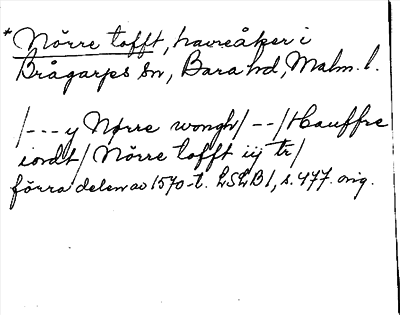 * Nörre tofft, havreåker i
Brågarps sn, Bara hd, Malm. l.
/---y Nørre wongh/--/Hauffre
iordt/ Nörre tofft iij tr/
förra delen av 1570-t. LSLB 1, s. 477. orig.